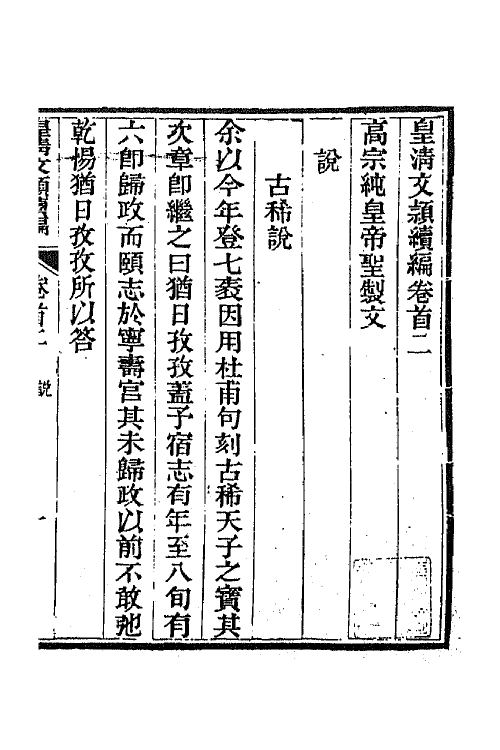 皇清文頴續編卷首二
高宗純皇帝聖製文
說
古稀說
余以今年登七袠因用杜甫句刻古稀天子之寶其
次章卽繼之曰猶日孜孜蓋予宿志有年至八旬有
六卽歸政而頤志於寧壽宮其未歸政以前不敢弛
乾惕猶日孜孜所以答
皇清文頴續編 卷首二 說 一